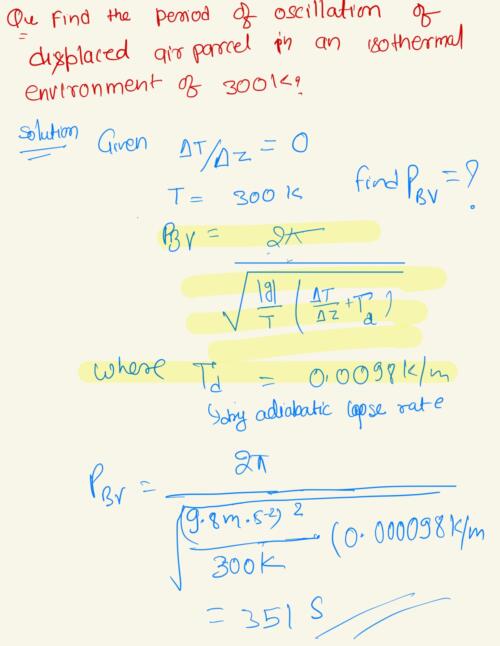 Que Find the period of oscillation of
displaced air parcel in an isothermal
environment of 300K?
Solution Given ΔT/ΔZ = 0
T = 300 K find P_BV = ?
P_BV = 2π / √( |g|/T ( ΔT/ΔZ + Γ_d ) )
where Γ_d = 0.0098 K/m
↳ dry adiabatic lapse rate
P_BV = 2π / √( (9.8 m.s-2)2 / 300K . (0.000098 K/m
= 351 S